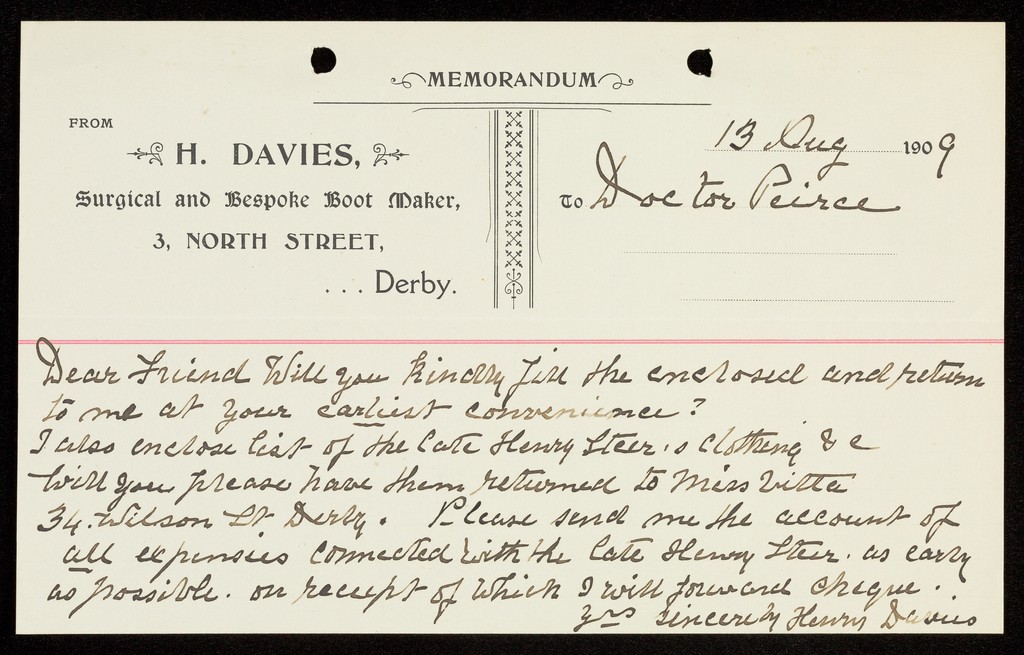 MEMORANDUM
FROM
H. DAVIES,
Surgical and Bespoke Boot Maker,
3, NORTH STREET,
. . . Derby.
13 Aug 1909
To Doctor Peirce
Dear Friend Will you kindly fill the enclosed and return
to me at your earliest convenience?
I also enclose list of the late Henry Steer's Clothing & c
Will you please have them returned to Miss
34. Wilson St Derby. Please send me the account of
all expensies connected with the late Henry Steer. as early
as possible. on receipt of which I will forward cheque.
yrs sincerely Henry Davies